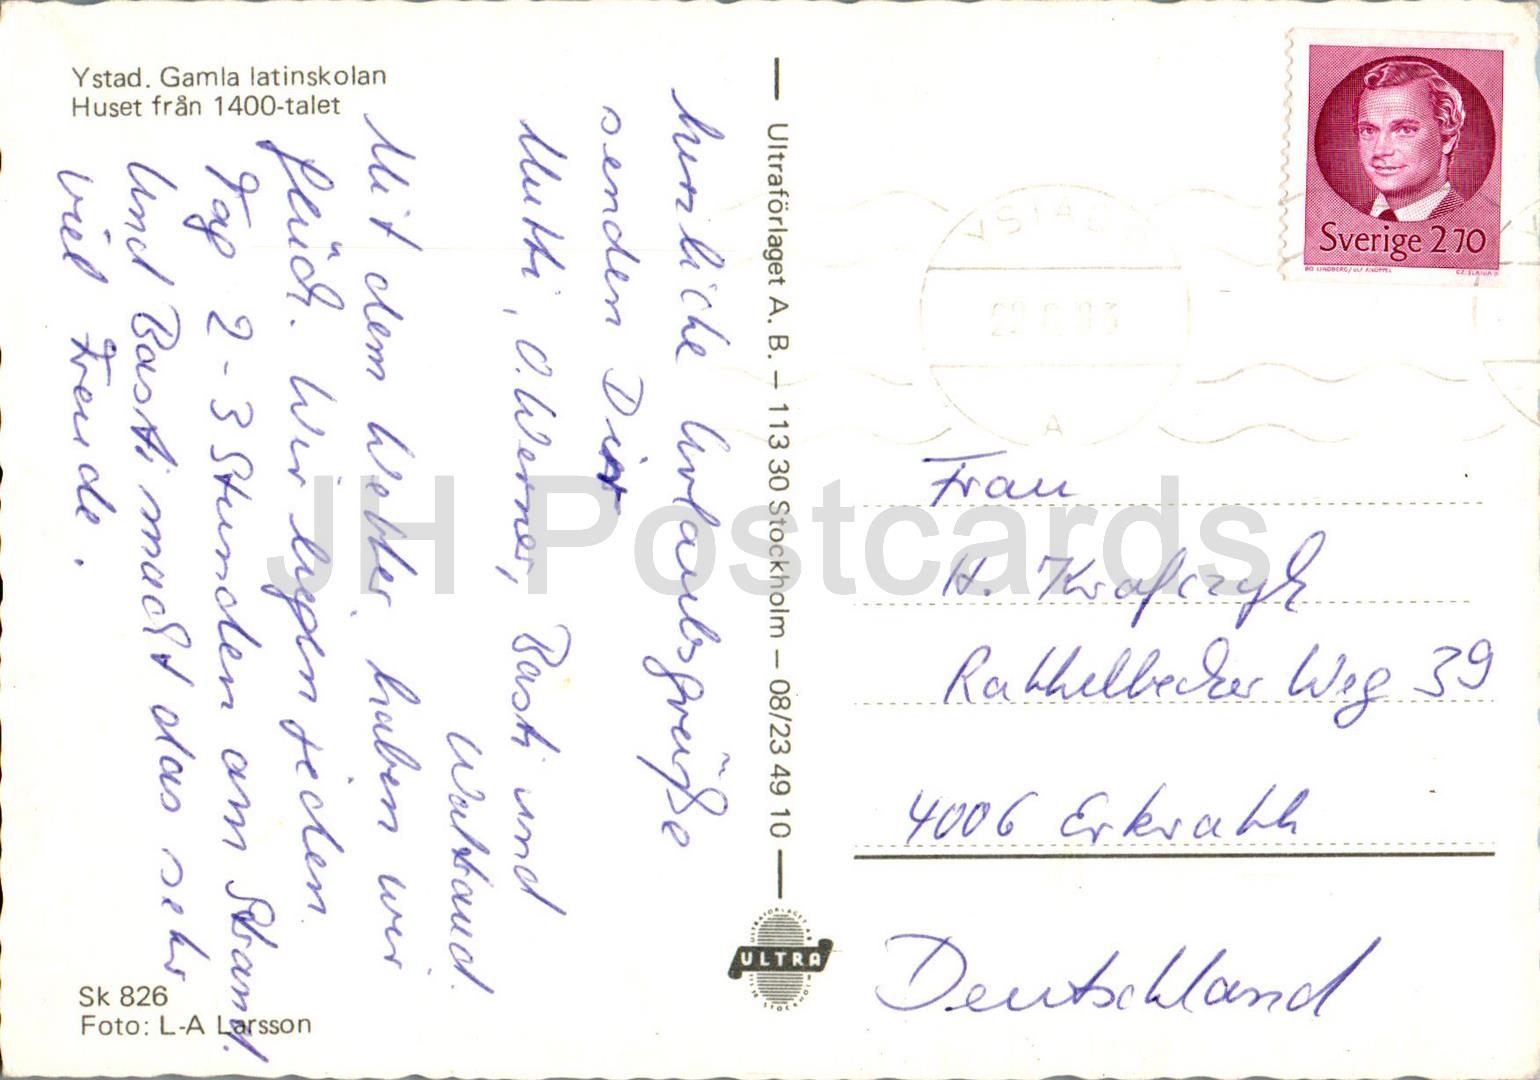 Ystad. Gamla latinskolan
Huset från 1400-talet
herzliche Urlaubsgrüße
senden Dir
Mutti, O. Werner, Basti und
Waltraud.
Mit dem Wetter haben wir
Glück. Wir liegen jeden
Tag 2-3 Stunden am Strand.
Und Basti macht das sehr
viel Freude.
Sk 826
Foto: L-A Larsson
Ultraförlaget A.B. — 113 30 Stockholm — 08/23 49 10
ULTRA
Sverige 270
BO LINDBERG/ULF KNOPPEL
CZ. SLANIA
YSTAD
A
Frau
H. Krafczyk
Rathelbecker Weg 39
4006 Erkrath
Deutschland
JH Postcards